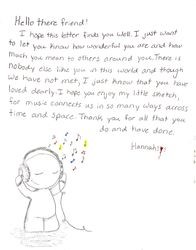 Hello there friend!
I hope this letter finds you well. I just want
to let you know how wonderful you are and how
much you mean to others around you. There is
nobody else like you in this world and though
we have not met, I just know that you have
loved dearly. I hope you enjoy my little sketch,
for music connects us in so many ways across
time and space. Thank you for all that you
do and have done.
Hannah